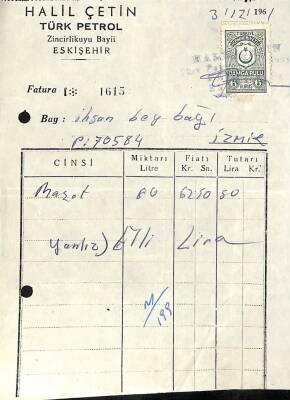 HALİL ÇETİN
TÜRK PETROL
Zincirlikuyu Bayii
ESKİŞEHİR
3/12/1961
TÜRKİYE
DAMGA PULU
Fatura 1615
Bay: ihsan bey bağı
Pi 70584 İZMİR
CİNSİ Miktarı Litre Fiatı Kr. Sn. Tutarı Lira Kr.
Mazot 80 6250 50
Yanlız) Elli Lira
M/199